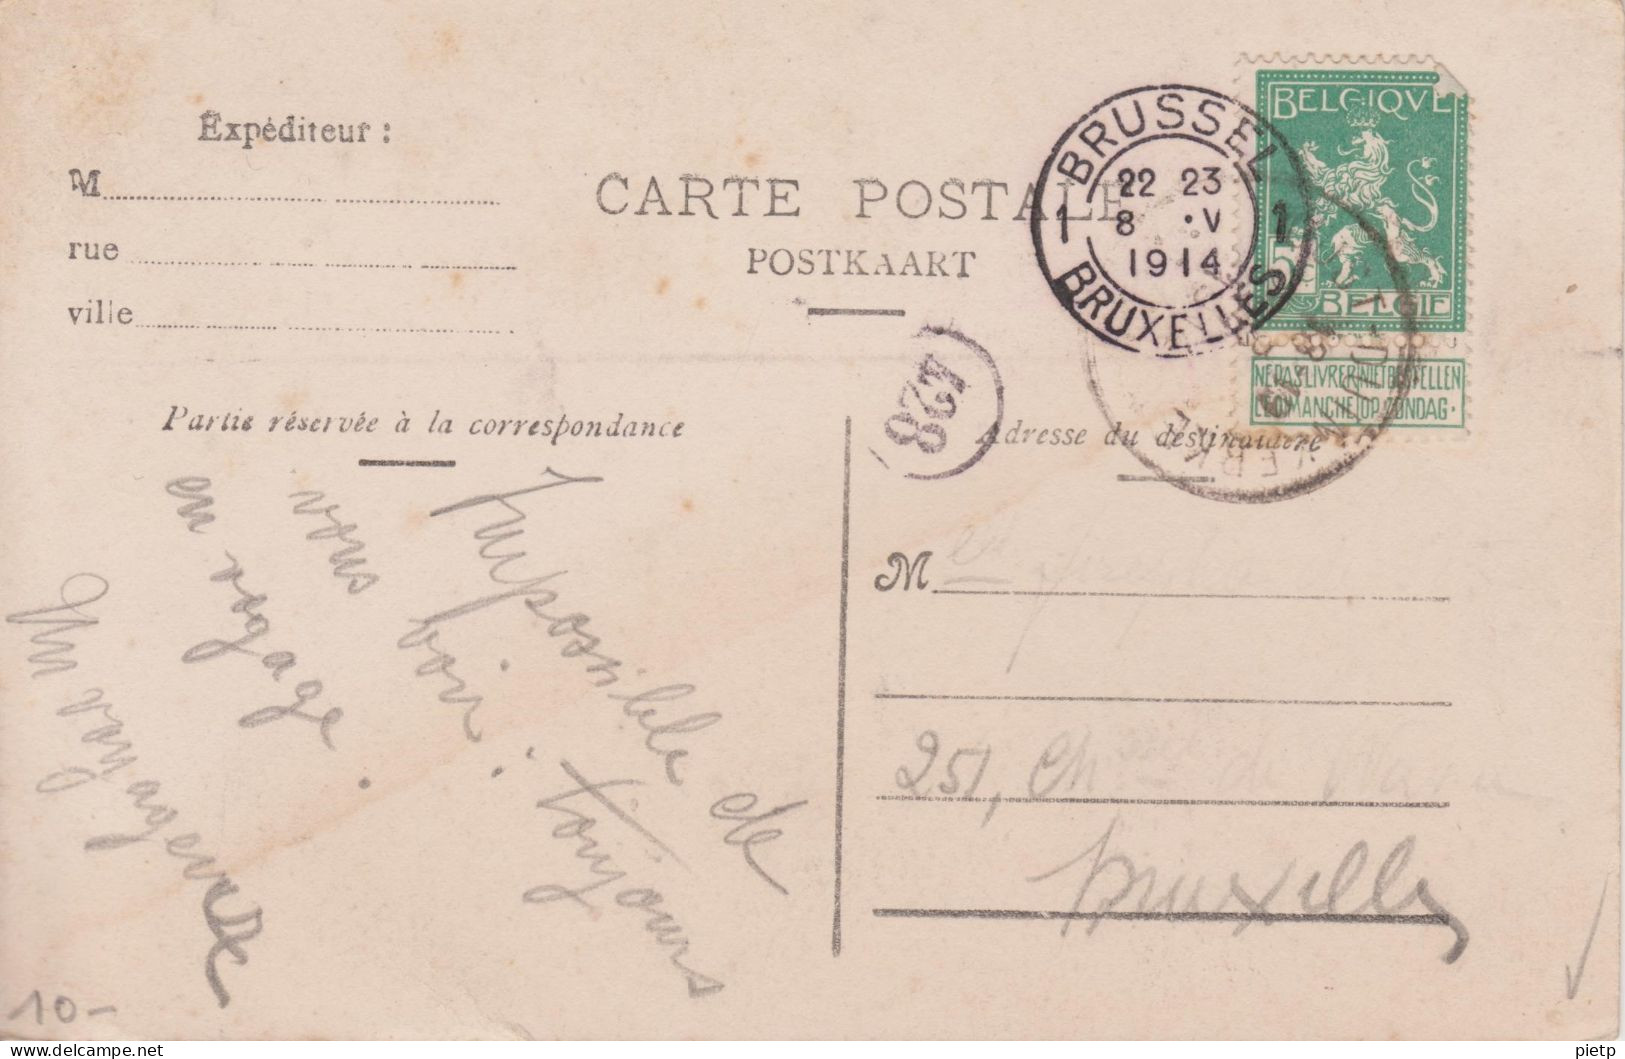 Expéditeur :
M
rue
ville
CARTE POSTALE
POSTKAART
BRUSSEL
1 22 23 1
8 • V
1914
BRUXELLES
BELGIQVE
5c
BELGIE
NE PAS LIVRER NIET BESTELLEN
LE DIMANCHE OP ZONDAG.
428
Partie réservée à la correspondance
Adresse du destinataire
Impossible de
vous voir. toujours
en voyage.
Un voyageur
M
251, Ch de
Bruxelles
10-
pietp